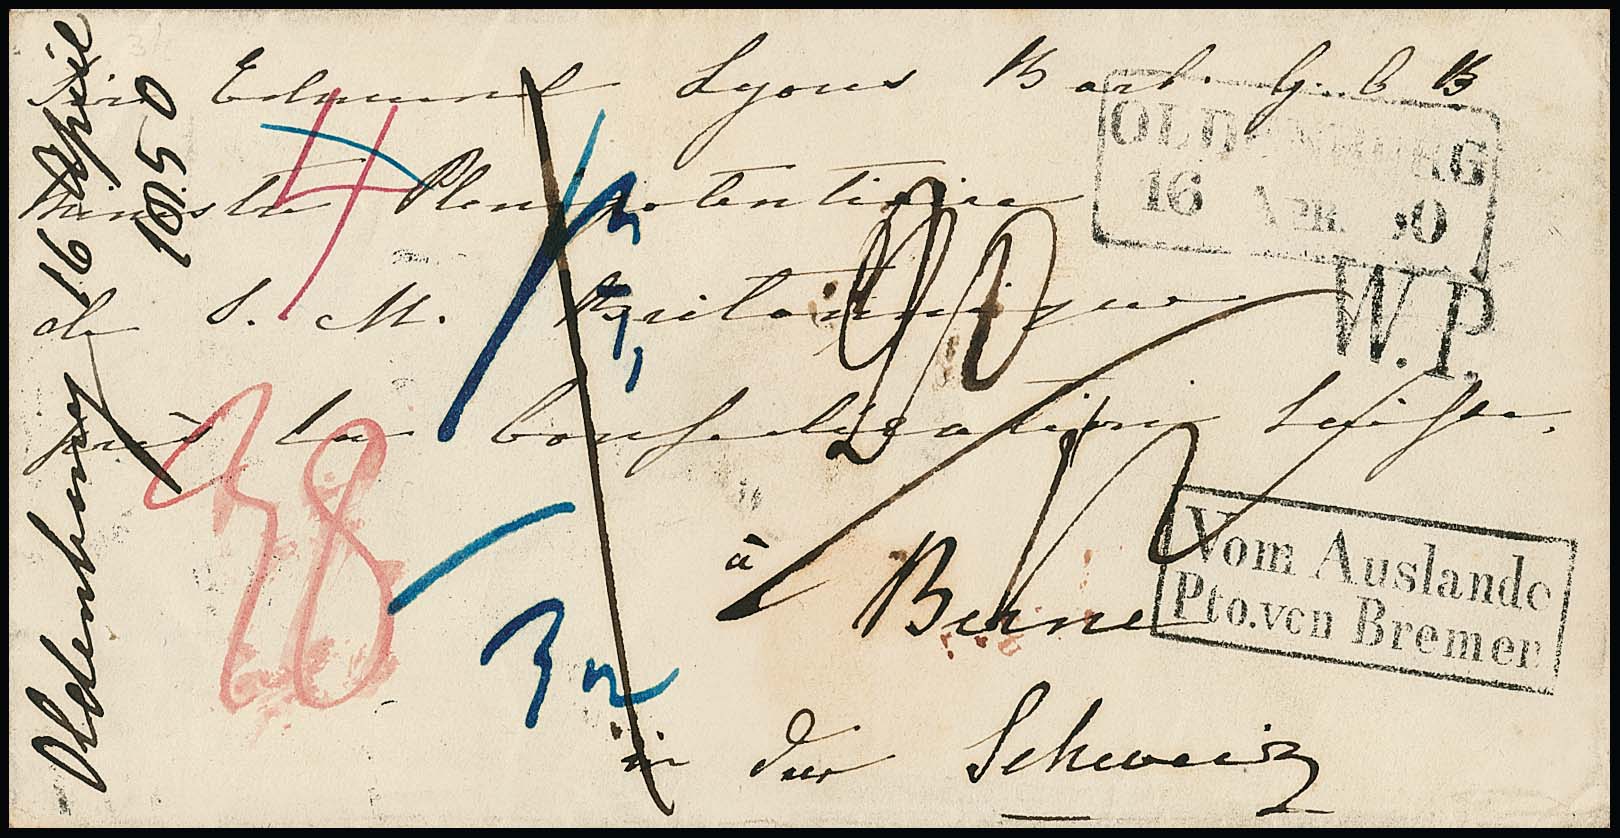 Sir Edmund Lyons Bart. G. C. B
Ministre Plenipotentiaire
de S. M. Britannique
près la Confederation Suisse.
à Berne
in der Schweiz
Oldenburg 16 April
1850
OLDENBURG
16 APR. 50
W.P.
Vom Auslande
Pto.von Bremen
4
38
32